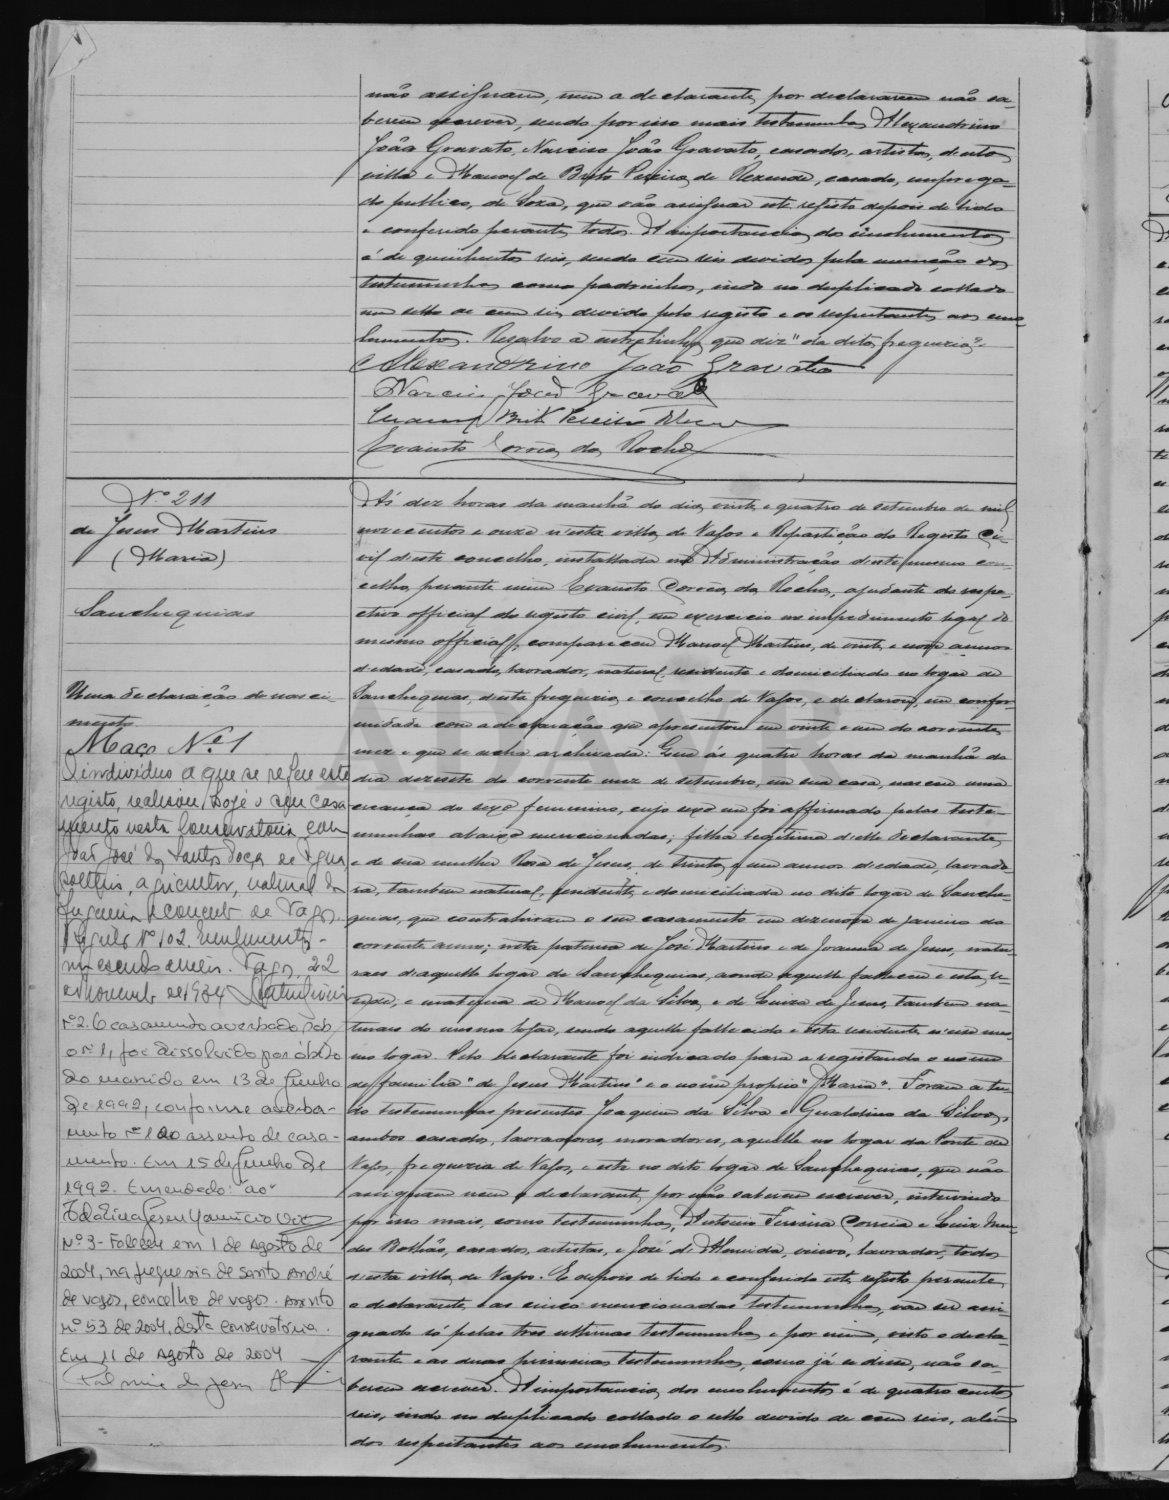 não assignam, nem a declarante, por declararem não sa-
berem escrever, sendo por isso mais testemunhas Alexandrino
João Gravato, Narciso João Gravato, casados, artistas, d'esta
villa e Manoel de Brito Pereira de Rezende, casado, emprega-
do publico, de Soza, que vão assignar este registo depois de lido
e conferido perante todos. A importancia dos emolumentos
é de quinhentos reis, sendo cem reis devidos pela menção das
testemunhas como padrinhos, indo no duplicado collado
um sello de cem reis, devido pelo registo e os respeitantes aos emo-
lumentos. Resalvo a entrelinha que diz "da dita freguezia".
Alexandrino João Gravato
Narciso João Gravato
Manoel Brito Pereira Rezende
Evaristo Corrêa da Rocha
Nº 211
de Jesus Martins
(Maria)
Sanchequias
Uma declaração de nasci-
mento
Maço Nº 1
O individuo a que se refere este
registo, realisou hoje o seu casa-
mento nesta Conservatoria com
João José dos Santos Roça de Agua,
solteiro, agricultor, natural da
freguesia e concelho de Vagos.
Registo Nº 102. Emolumentos -
Vagos, 22
de Novembro de 1934
Nº 2. O casamento averbado sob
o nº 1, foi dissolvido por óbito
do marido em 13 de Junho
de 1992, conforme averba-
mento nº 1 ao assento de casa-
mento. Em 15 de Junho de
1992. Emendado: "ao"
Nº 3 - Faleceu em 1 de Agosto de
2004, na freguesia de Santo André
de Vagos, concelho de Vagos. Assento
nº 53 de 2004, desta conservatória.
Em 11 de Agosto de 2004
Ás dez horas da manhã do dia vinte e quatro de setembro de mil
novecentos e onze n'esta villa de Vagos e Repartição do Registo Ci-
vil d'este concelho, installada na Administração d'este mesmo con-
celho, perante mim Evaristo Corrêa da Rocha, ajudante do respe-
ctivo official do registo civil, em exercicio no impedimento legal do
mesmo official, compareceu Manoel Martins, de vinte e nove annos
d'edade, casado, lavrador, natural, residente e domiciliado no logar de
Sanchequias, d'esta freguezia e concelho de Vagos, e declarou, em confor-
midade com a declaração que apresentou em vinte e um do corrente
mez e que se acha archivada: Que ás quatro horas da manhã do
dia dezesete do corrente mez de setembro, em sua casa, nasceu uma
creança do sexo feminino, cujo sexo me foi affirmado pelas teste-
munhas abaixo mencionadas; filha legitima d'elle declarante,
e de sua mulher Rosa de Jesus, de trinta e um annos d'edade, lavrado-
ra, tambem natural, residente e domiciliada no dito logar de Sanche-
quias, que contrahiram o seu casamento em dezenove de janeiro do
corrente anno; neta paterna de José Martins e de Joanna de Jesus, natu-
raes d'aquelle logar de Sanchequias, aonde aquelle falleceu e esta re-
side, e materna de Manoel da Silva, e de Luiza de Jesus, tambem na-
turaes do mesmo logar, sendo aquelle fallecido e esta residente n'esse mes-
mo logar. Pelo declarante foi indicado para a registanda o nome
de familia "de Jesus Martins" e o nome proprio "Maria". Foram a tu-
do testemunhas presentes Joaquim da Silva e Gualdino da Silva,
ambos casados, lavradores, moradores, aquelle no logar da Ponte de
Vagos, freguezia de Vagos, e este no dito logar de Sanchequias, que não
assignam nem o declarante, por não saberem escrever, intervindo
por isso mais, como testemunhas, Antonio Ferreira Correia e Luiz Men-
des Bolhão, casados, artistas, e José d'Almeida, viuvo, lavrador, todos
d'esta villa de Vagos. E depois de lido e conferido este registo perante
o declarante e as cinco mencionadas testemunhas, vae ser assi-
gnado só pelas tres ultimas testemunhas e por mim, visto o decla-
rante e as duas primeiras testemunhas, como já se disse, não sa-
berem escrever. A importancia dos emolumentos é de quatro centos
reis, indo no duplicado collado o sello devido de cem reis, além
dos respeitantes aos emolumentos.